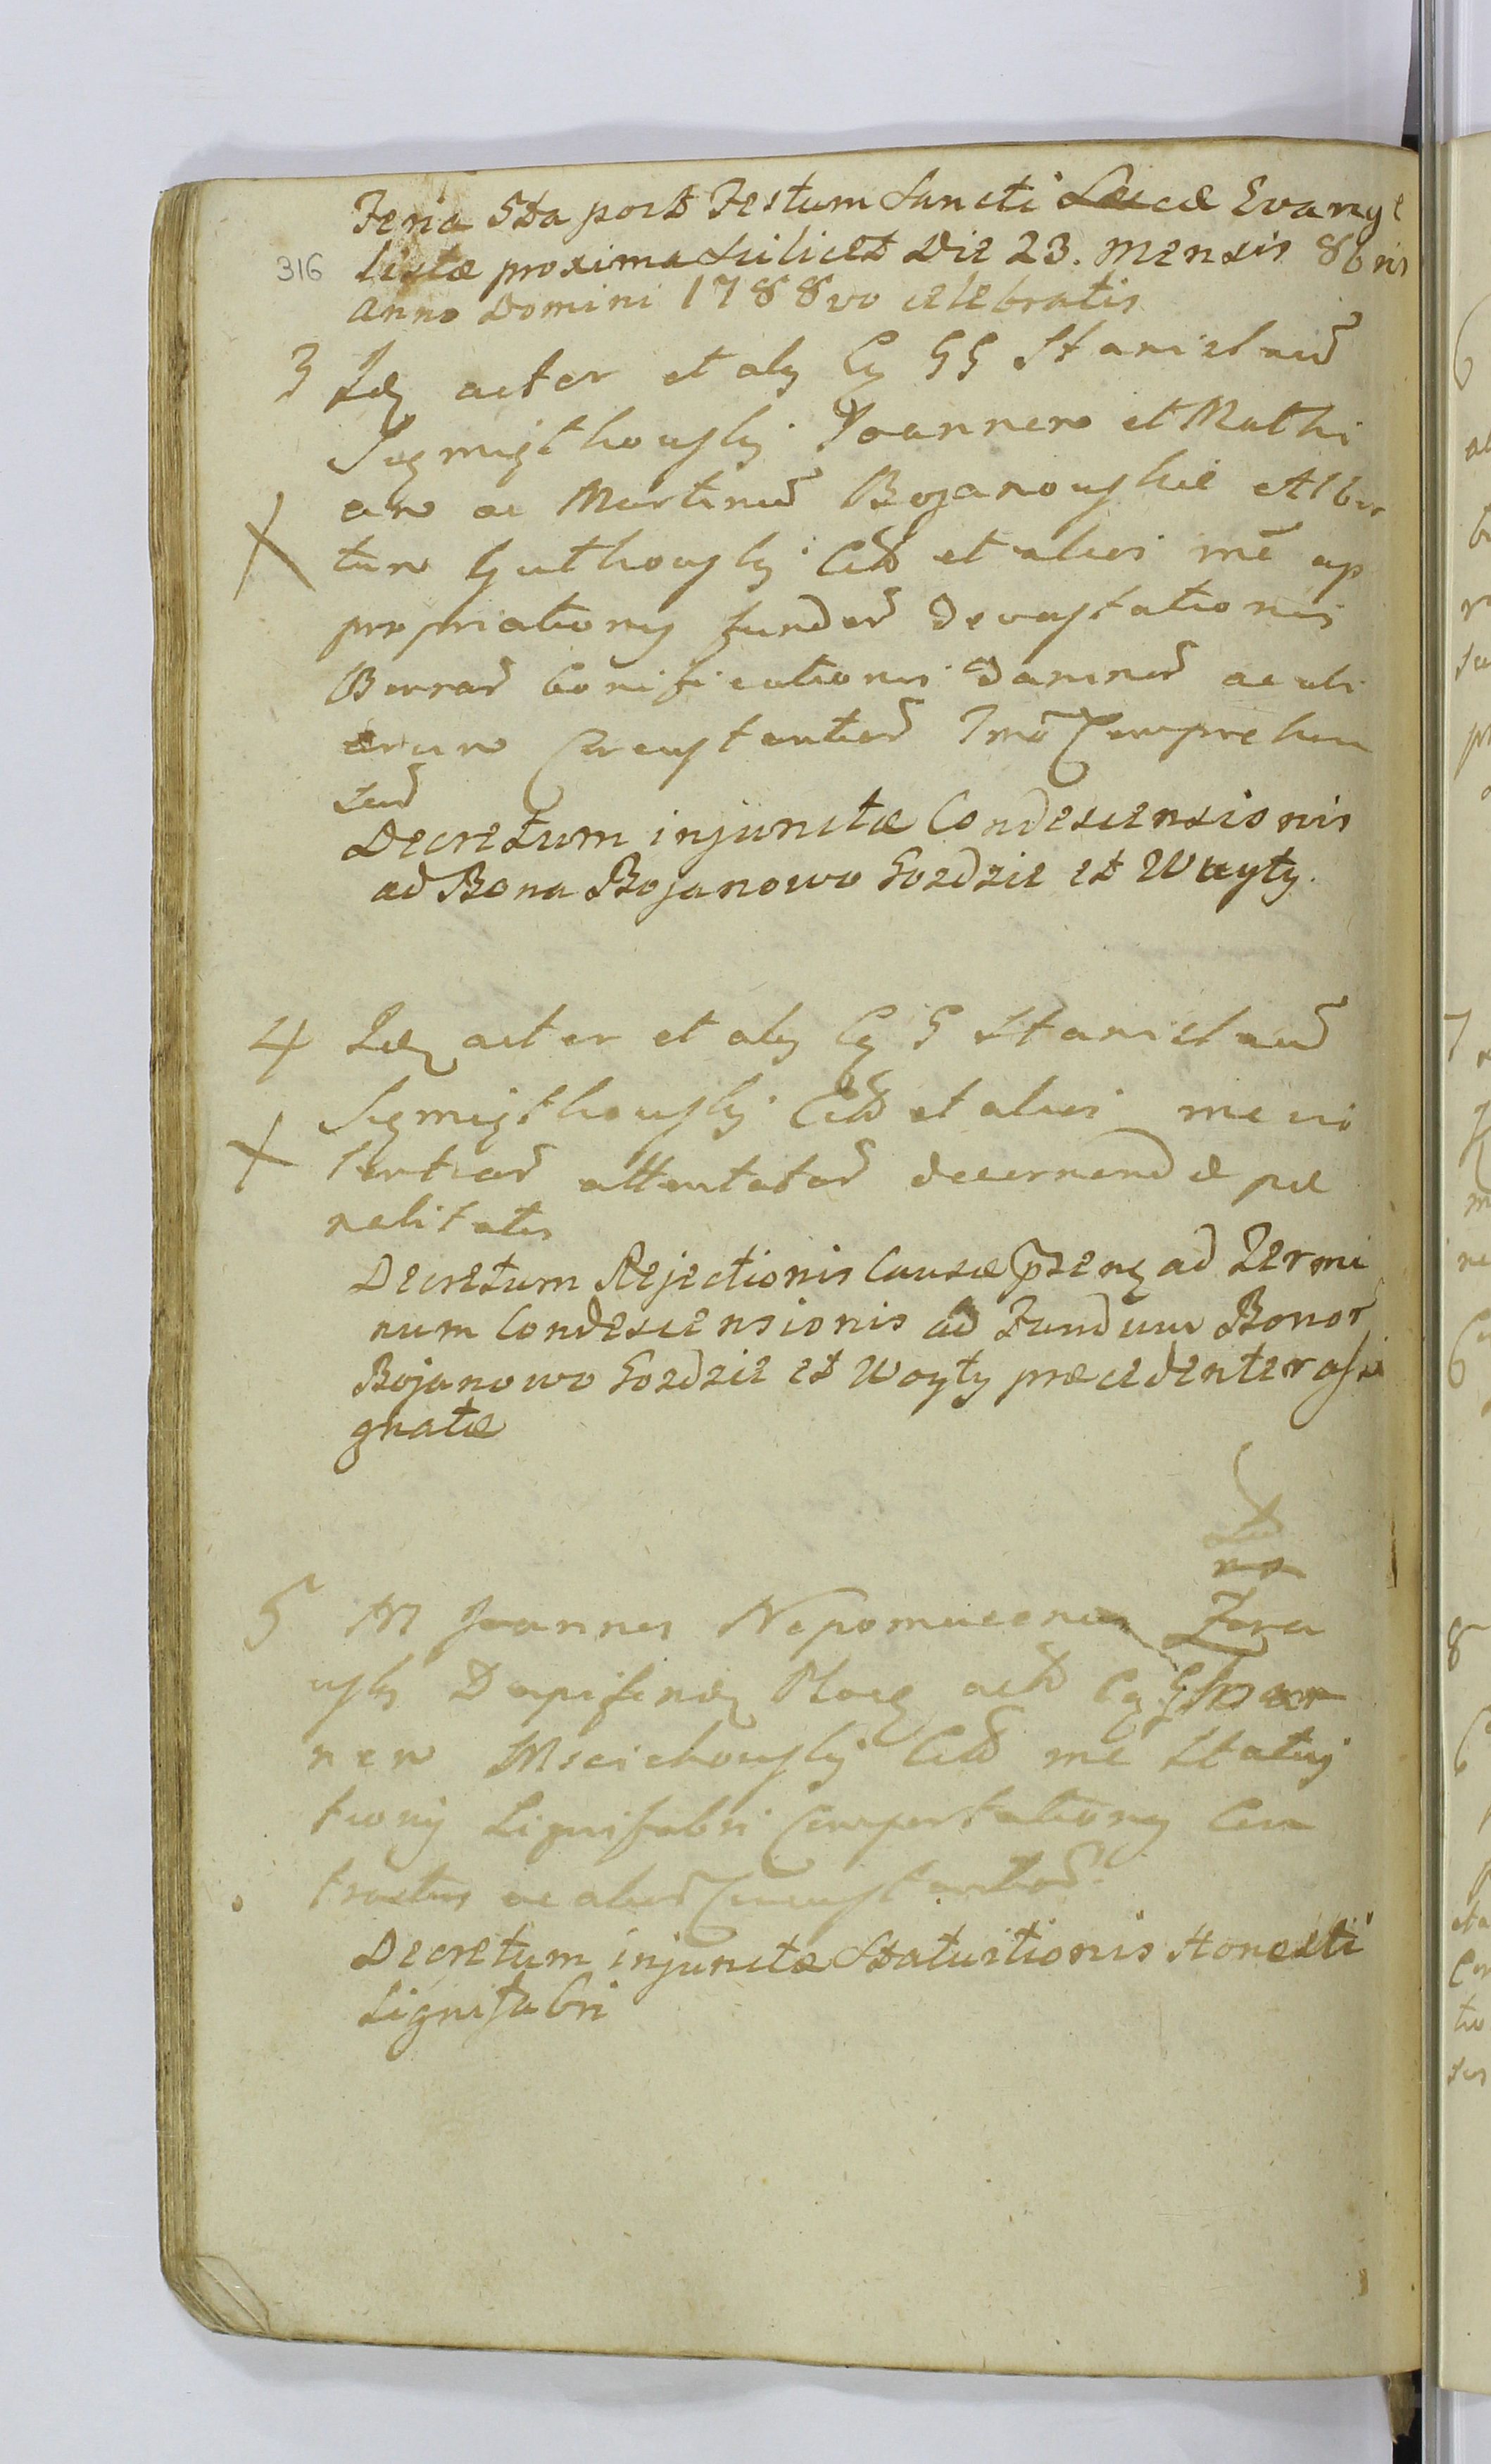 Feria 5ta post Festum Sancti Lucæ Evange
316 listæ proxima scilicet Die 23. Mensis 8bris
Anno Domini 1788vo celebratis
3 Idz actor et aly Cg GG Stanislaū
Szmigthowsky Joannem et Mathi
am ac Martinū Bojanowskie Alber
tum Guthowsky Citt et alios mē ap
propriationis fundor̄ devastationis
Borrar̄ bonificationis Damnor̄ ac ali
arum Circustantiar̄ Imō Comprehen
sar̄
Decretum injunctæ Condescensionis
ad Bona Bojanowo Gozdzie et Wayty.
4 Idz actor et aly Cg G Stanislaū
Szmigthowsky Citt et alios me vio
lentiar̄ attentator̄ decernendæ pæ
nalitatis
Decretum Rejectionis Causæ p̄seng ad Termi
num Condescensionis ad Fundum Bonor̄
Bojanowo Gozdzie et Woyty præcedenter assi
gnatæ
5 M Joannes Nepomucenus Zera
wsky Dapiferidz act Cg G Joan
nem Mscichowsky Citt me Statui
tionis Lignifabri Comportationis Con
tractus ac alior̄ Circustantiar̄
Decretum injunctæ Statuitionis Honesti
Lignifabri